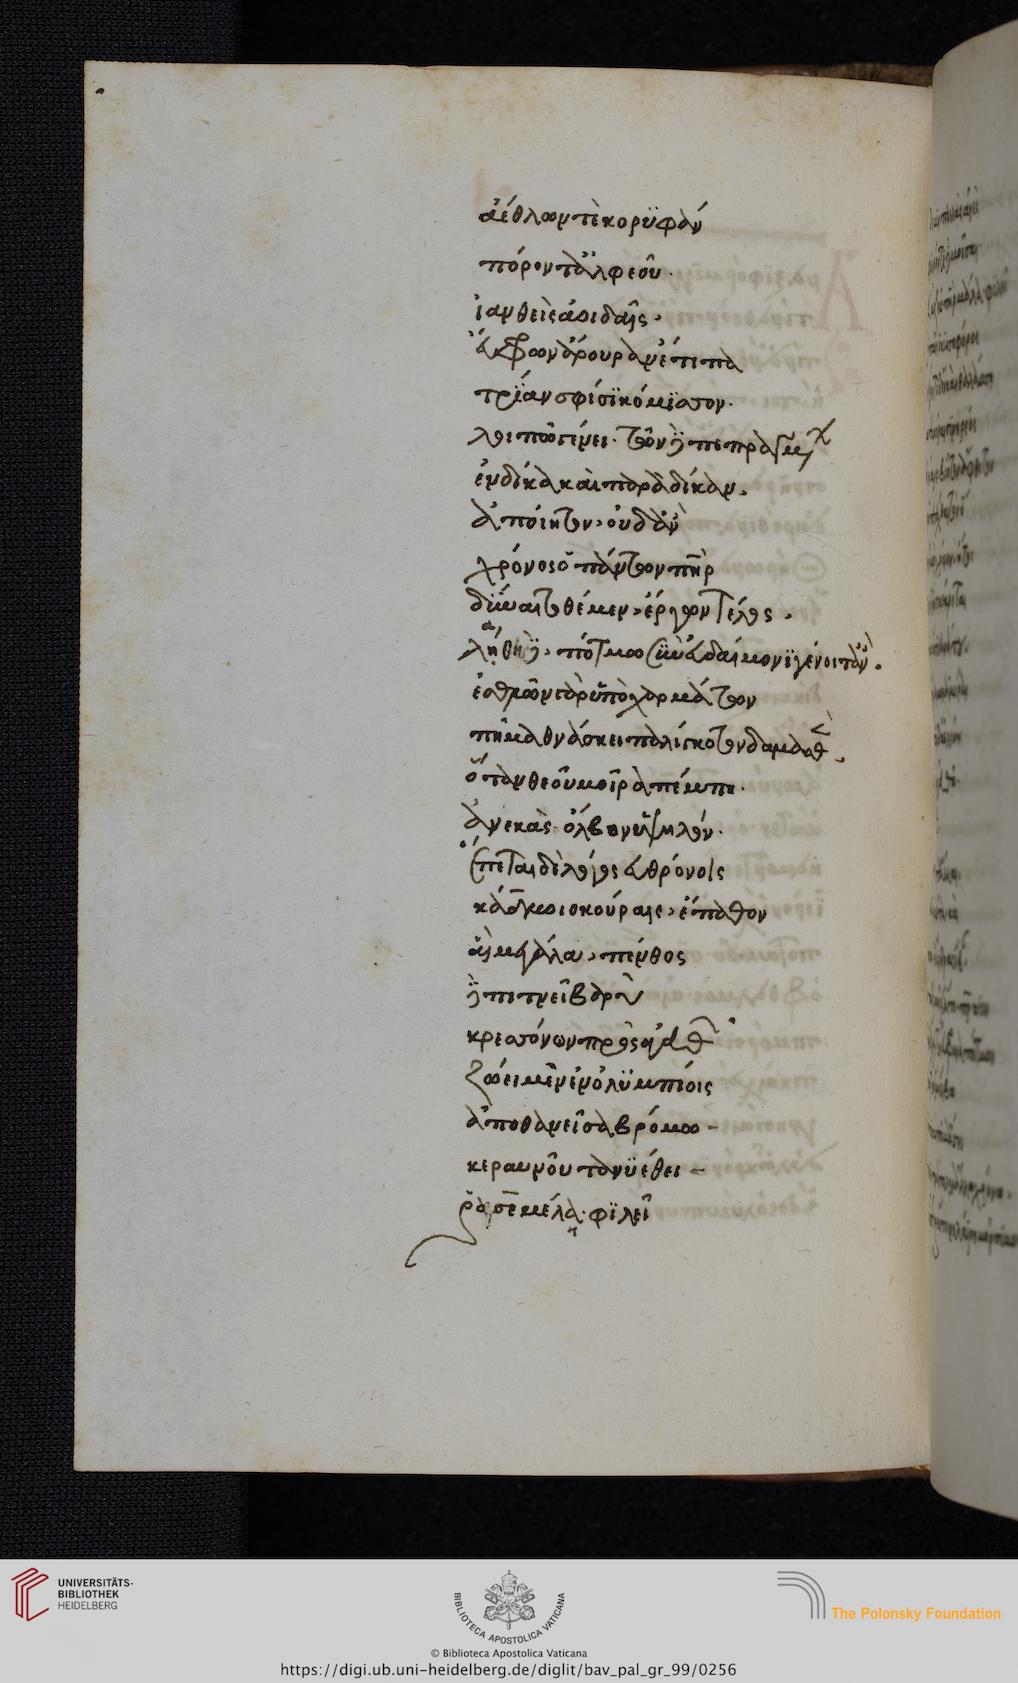 ἀέθλων τὲ κορϋφὰν
πόρον τ' ἀλφεοῦ.
ἰανθεὶς ἀοιδαῖς.
εὔφρων ἄρουραν ἔτι πα
τρΐαν σφίσϊ κόμϊσον.
λοιπῶ γένει. τῶν δὲ πεπραγμένων
ἐν δίκα καὶ παρὰ δίκαν.
ἀποίητον, οὐδ' ἂν
χρόνος ὁ πάντων πατὴρ
δύναιτο θέμεν, ἔργων τέλος.
λάθα δὲ, πότμω σὺν εὐδαίμονϊ γένοιτ' ἄν.
ἐσθλῶν γὰρ ὑπὸ χαρμάτων
πῆμα θνάσκει παλίγκοτον δαμασθὲν.
ὅταν θεοῦ μοῖρα πέμπη.
ἀνεκὰς ὄλβον ὑψηλόν.
ἕπεται δὲ λόγος εὐθρόνοις
κάδμοιο κούραις, ἔπαθον
αἳ μεγάλα, πένθος
δὲ πιτνεῖ βαρὺ
κρεσσόνων πρὸς ἀγαθῶν.
ζώει μὲν ἐν ὀλϋμπίοις
ἀποθανεῖσα βρόμω
κεραυνοῦ τανϋέθει
ρα σεμέλα. φϊλεῖ
UNIVERSITÄTS-
BIBLIOTHEK
HEIDELBERG
BIBLIOTECA APOSTOLICA VATICANA
The Polonsky Foundation
© Biblioteca Apostolica Vaticana
https://digi.ub.uni-heidelberg.de/diglit/bav_pal_gr_99/0256